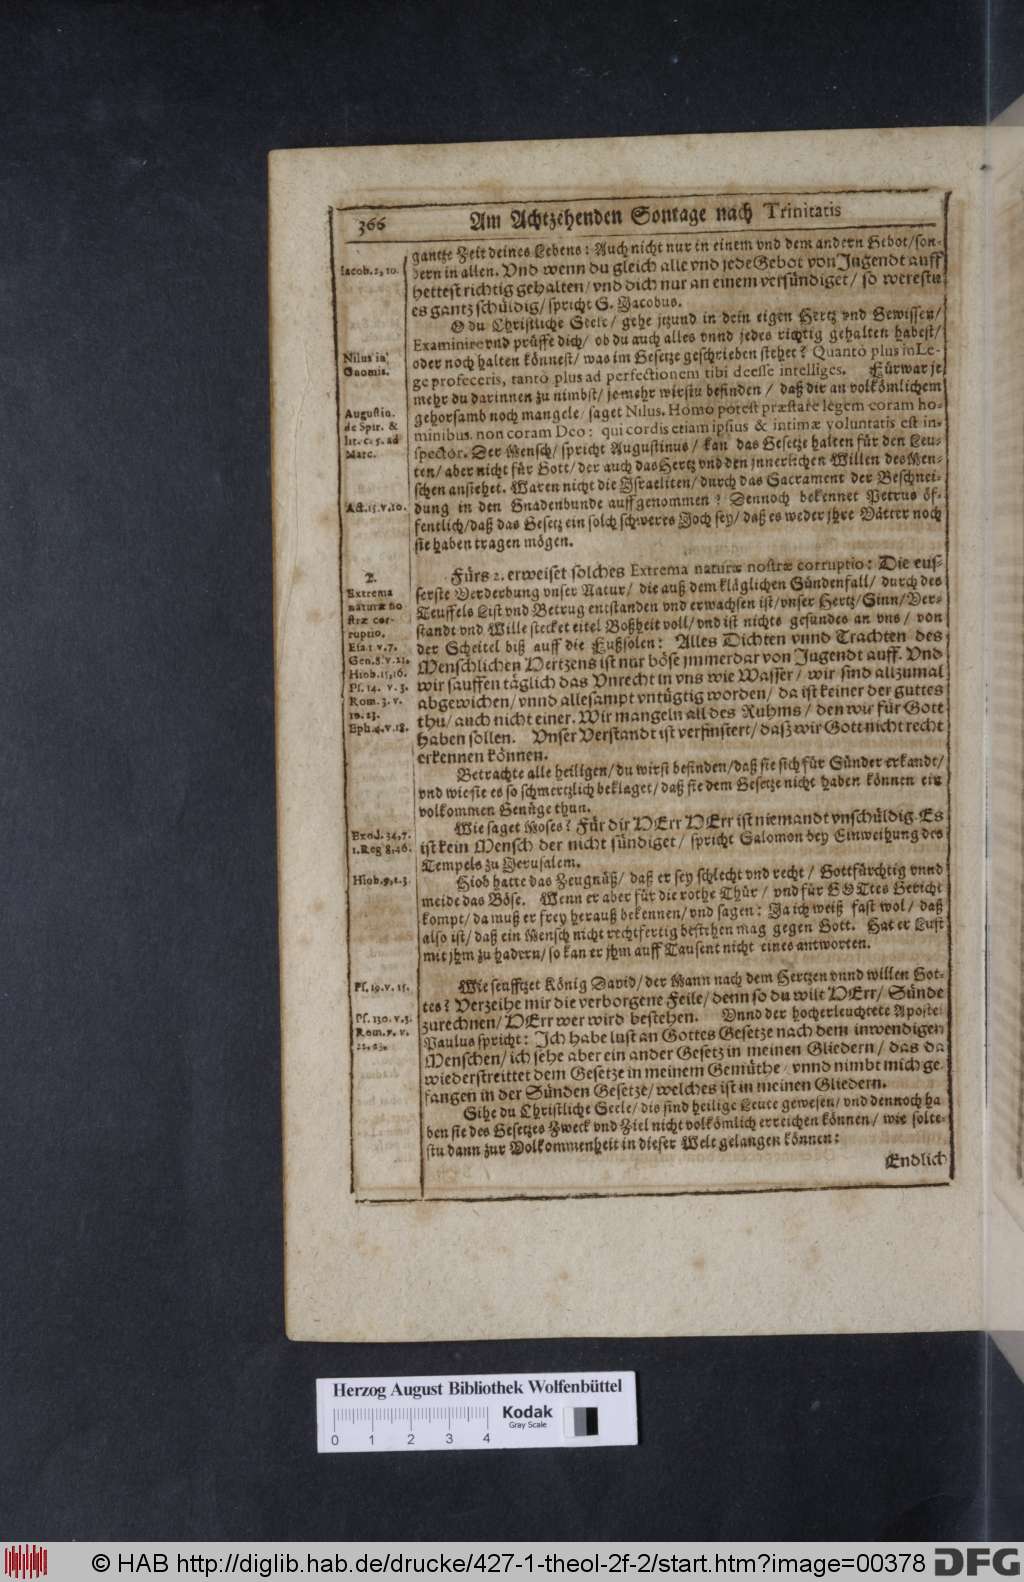 366
Am Achtzehenden Sontage nach Trinitatis
gantze Zeit deines Lebens: Auch nicht nur in einem vnd dem andern Gebot/ son-
Iacob. 2, 10.
dern in allen. Vnd wenn du gleich alle vnd jede Gebot von Jugendt auff
hettest richtig gehalten/ vnd dich nur an einem versündiget/ so werestu
es gantz schüldig/ spricht S. Jacobus.
O du Christliche Seele/ gehe jtzund in dein eigen Hertz vnd Gewissen/
Examinire vnd prüffe dich/ ob du auch alles vnnd jedes richtig gehalten habest/
Nilus in
Gnomis.
oder noch halten könnest/ was im Gesetze geschrieben stehet? Quantò plus in Le-
ge profeceris, tantò plus ad perfectionem tibi deesse intelliges. Fürwar je
mehr du darinnen zu nimbst/ je mehr wirstu befinden/ daß dir an volkömlichem
Augustin.
de Spir. &
lit. c. 5. ad
Marc.
gehorsamb noch mangele/ saget Nilus. Homo potest præstare legem coram ho-
minibus, non coram Deo: qui cordis etiam ipsius & intimæ voluntatis est in-
spector. Der Mensch/ spricht Augustinus/ kan das Gesetze halten für den Leu-
ten/ aber nicht für Gott/ der auch das Hertz vnd den jnnerlichen Willen des Men-
schen ansiehet. Waren nicht die Jsraeliten/ durch das Sacrament der Beschnei-
Act. 15. v. 10.
dung in den Gnadenbunde auffgenommen? Dennoch bekennet Petrus öf-
fentlich/ daß das Gesetz ein solch schweres Joch sey/ daß es weder jhre Vätter noch
sie haben tragen mögen.
2.
Extrema
naturæ no
stræ cor-
ruptio.
Fürs 2. erweiset solches Extrema naturæ nostræ corruptio: Die eus-
serste Verderbung vnser Natur/ die auß dem kläglichen Sündenfall/ durch des
Teuffels List vnd Betrug entstanden vnd erwachsen ist/ vnser Hertz/ Sinn/ Ver-
standt vnd Wille stecket eitel Boßheit voll/ vnd ist nichts gesundes an vns/ von
Esa. 1. v. 7.
Gen. 8. v. 21.
Hiob. 15, 16.
Ps. 14. v. 3.
Rom. 3. v.
10. 23.
Eph. 4. v. 18.
der Scheitel biß auff die Fußsolen: Alles Dichten vnnd Trachten des
Menschlichen Hertzens ist nur böse jmmerdar von Jugendt auff. Vnd
wir sauffen täglich das Vnrecht in vns wie Wasser/ wir sind allzumal
abgewichen/ vnnd allesampt vntügtig worden/ da ist keiner der guttes
thu/ auch nicht einer. Wir mangeln all des Ruhms/ den wir für Gott
haben sollen. Vnser Verstandt ist verfinstert/ daß wir Gott nicht recht
erkennen können.
Betrachte alle heiligen/ du wirst befinden/ daß sie sich für Sünder erkandt/
vnd wie sie es so schmertzlich beklaget/ daß sie dem Gesetze nicht haben können ein
volkommen Genüge thun.
Exod. 34, 7.
1. Reg 8, 46.
Wie saget Moses? Für dir HErr HErr ist niemandt vnschüldig. Es
ist kein Mensch der nicht sündiget/ spricht Salomon bey Einweihung des
Tempels zu Jerusalem.
Hiob. 9, 2. 3.
Hiob hatte das Zeugnüß/ daß er sey schlecht vnd recht/ Gottfürchtig vnnd
meide das Böse. Wenn er aber für die rothe Thür/ vnd für GOttes Gericht
kompt/ da muß er frey herauß bekennen/ vnd sagen: Ja ich weiß fast wol/ daß
also ist/ daß ein Mensch nicht rechtfertig bestehen mag gegen Gott. Hat er Lust
mit jhm zu hadern/ so kan er jhm auff Tausent nicht eines antworten.
Ps. 19. v. 15.
Wie seufftzet König David/ der Mann nach dem Hertzen vnnd willen Got-
tes? Verzeihe mir die verborgene Feile/ denn so du wilt HErr/ Sünde
Ps. 130. v. 3.
Rom. 7. v.
22. 23.
zurechnen/ HErr wer wird bestehen. Vnnd der hocherleuchtete Apostel
Paulus spricht: Ich habe lust an Gottes Gesetze nach dem inwendigen
Menschen/ ich sehe aber ein ander Gesetz in meinen Gliedern/ das da
wiederstreittet dem Gesetze in meinem Gemüthe/ vnnd nimbt mich ge-
fangen in der Sünden Gesetze/ welches ist in meinen Gliedern.
Sihe du Christliche Seele/ dis sind heilige Leute gewesen/ vnd dennoch ha
ben sie des Gesetzes Zweck vnd Ziel nicht volkömlich erreichen können/ wie solte-
stu dann zur Volkommenheit in dieser Welt gelangen können:
Endlich
Herzog August Bibliothek Wolfenbüttel
Kodak
Gray Scale
0 1 2 3 4
© HAB http://diglib.hab.de/drucke/427-1-theol-2f-2/start.htm?image=00378
DFG